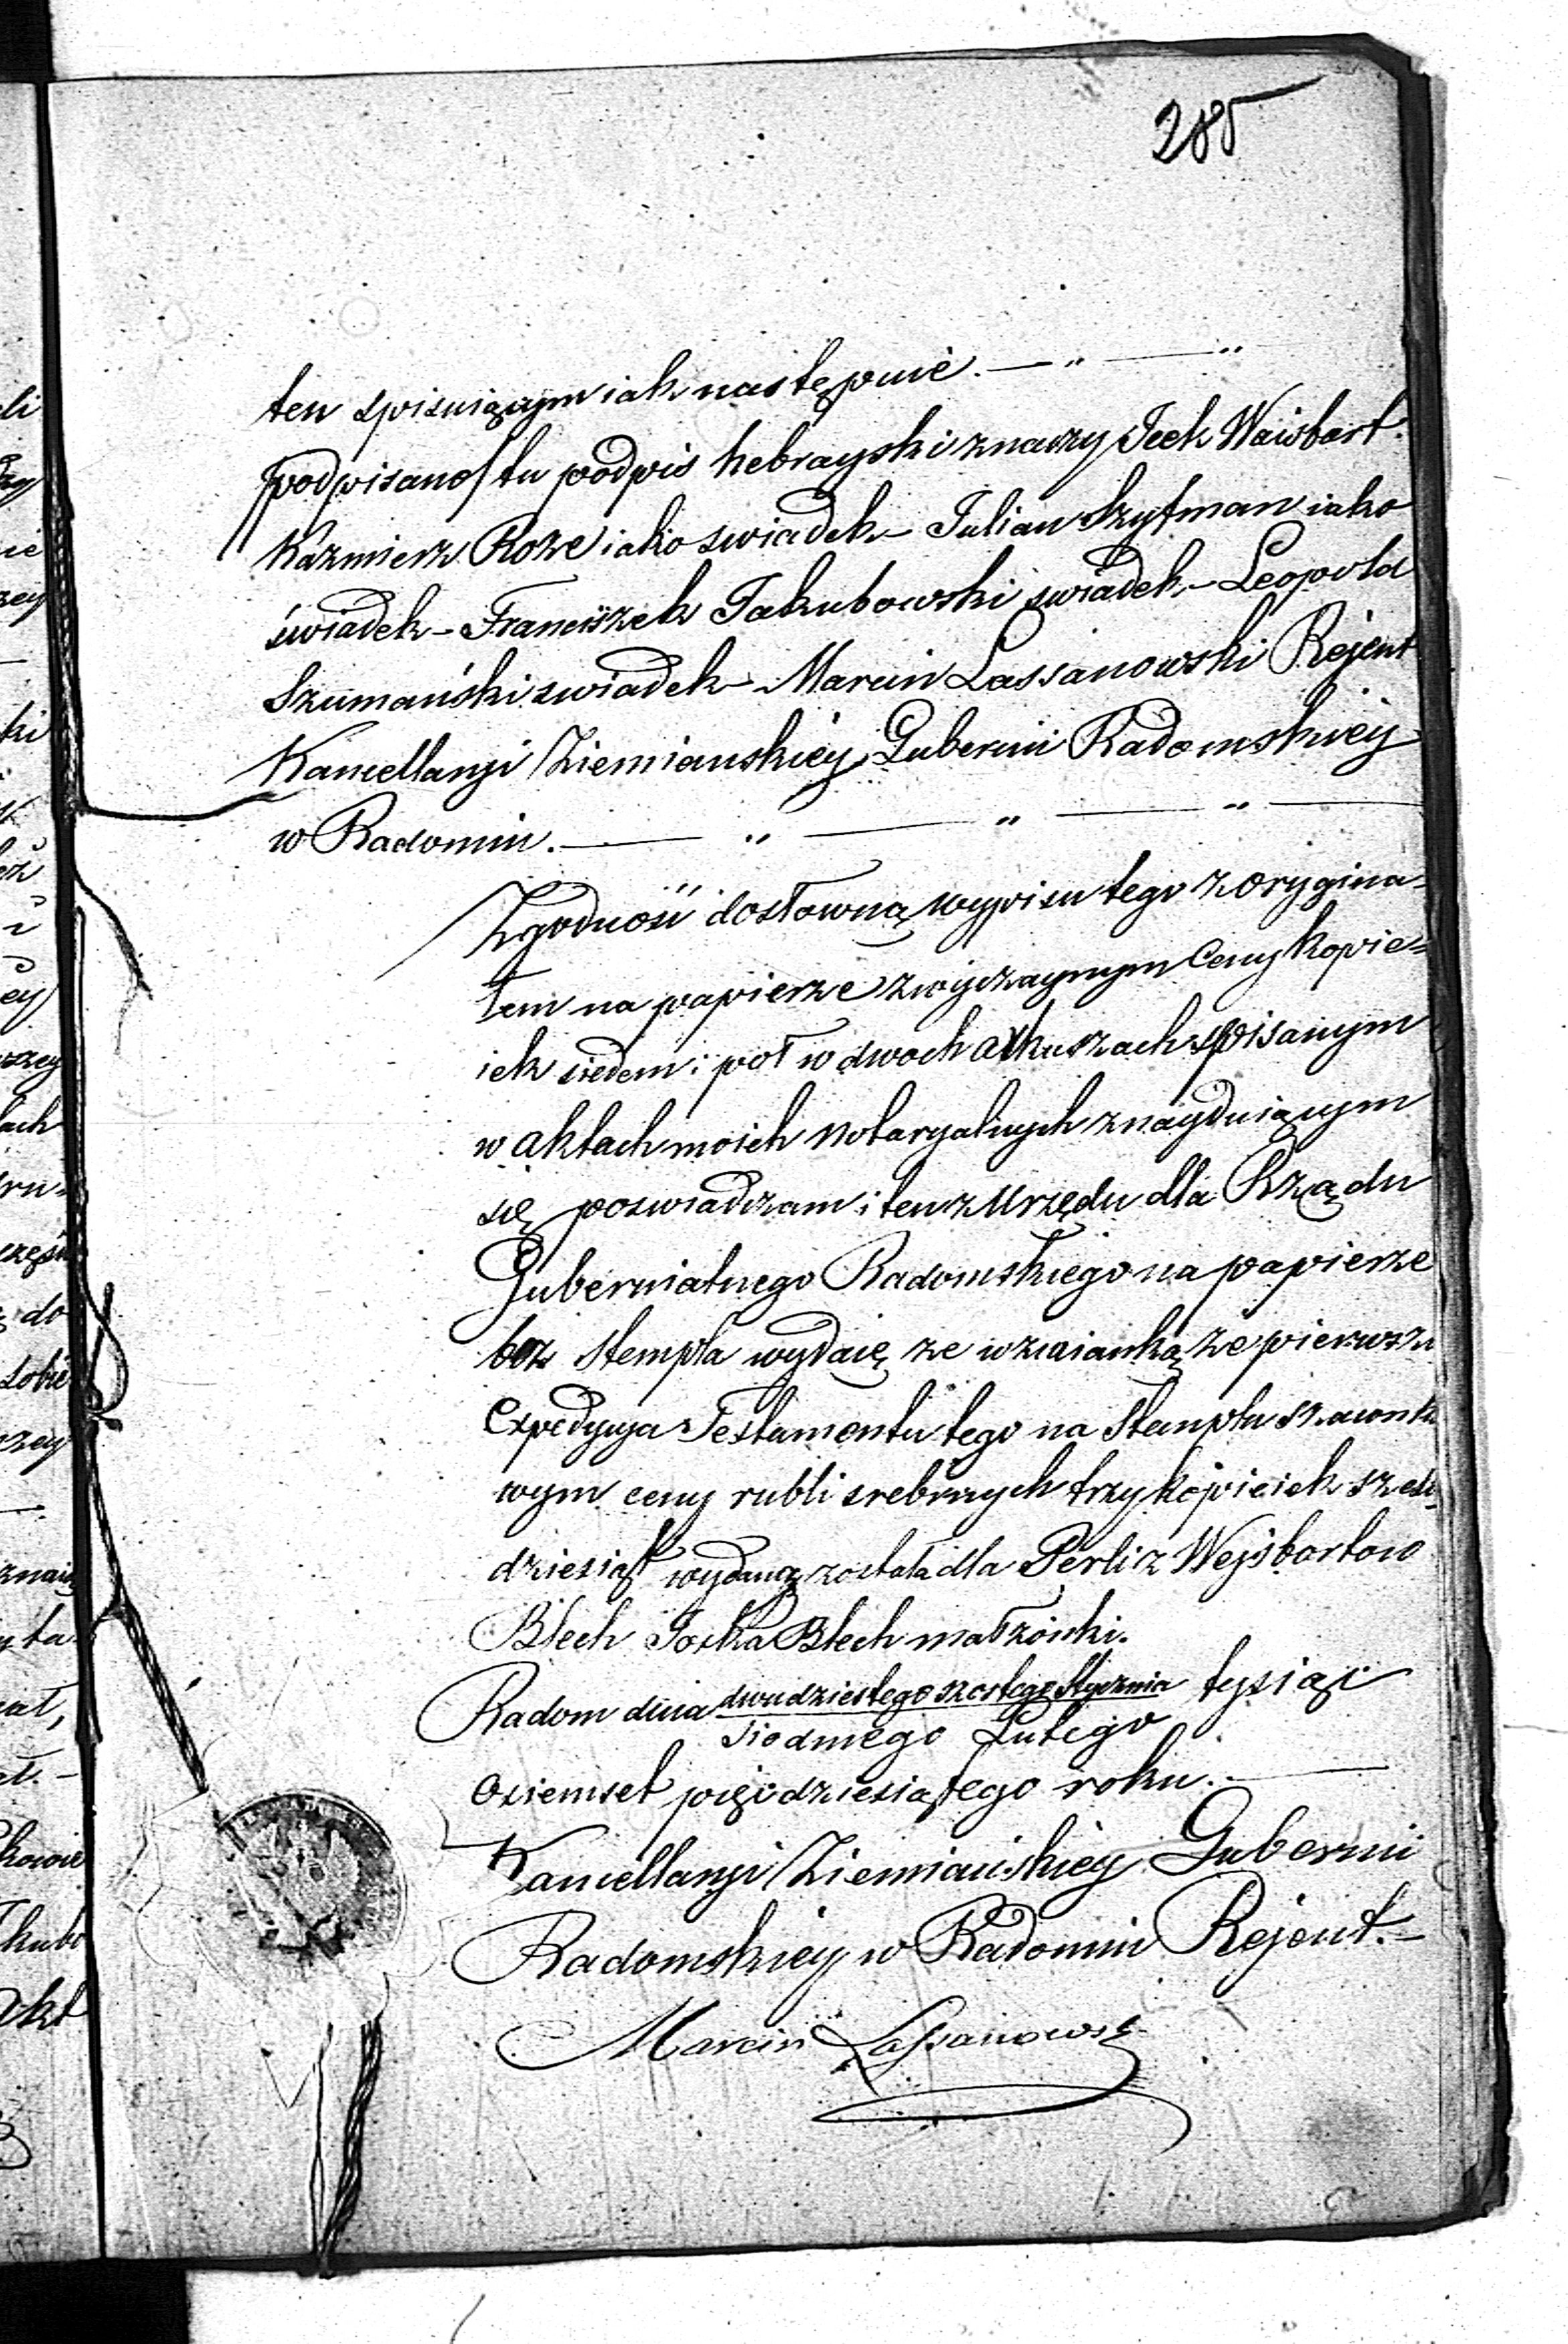 285
ten spisuiącym iak następuie. — „ — „
/podpisano/ tu podpis hebrayski znaczy Icek Waisbort.
Kazmierz Roze iako swiadek – Julian Szyfman iako
świadek – Franciszek Jakubowski swiadek – Leopold
Szumański swiadek – Marcin Lassanowski Rejent
Kancellaryi Ziemianskiey Gubernii Radomskiey
w Radomiu. — „ — „ — „ —
Zgodność dosłowną wypisu tego z orygina-
łem na papierze zwyczaynym Ceny kopie-
iek siedem i poł w dwoch arkuszach spisanym
w aktach moich Notaryalnych znayduiącym
się poswiadczam i ten z Urzędu dla Rządu
Gubernialnego Radomskiego na papierze
bez stempla wydaię ze wzmianką ze pierwsza
Expedycya Testamentu tego na Stemplu szacunko
wym ceny rubli srebrnych trzy kopieiek sześć-
dziesiąt wydaną została dla Perli z Wejsbortow
Blech Joska Blech małżonki.
Radom dnia dwudziestego szostego Stycznia tysiąc
siodmego Lutego
osiemset pięćdziesiątego roku. —
Kancellaryi Ziemiańskiey Gubernii
Radomskiey w Radomiu Rejent. –
Marcin Lassanowski